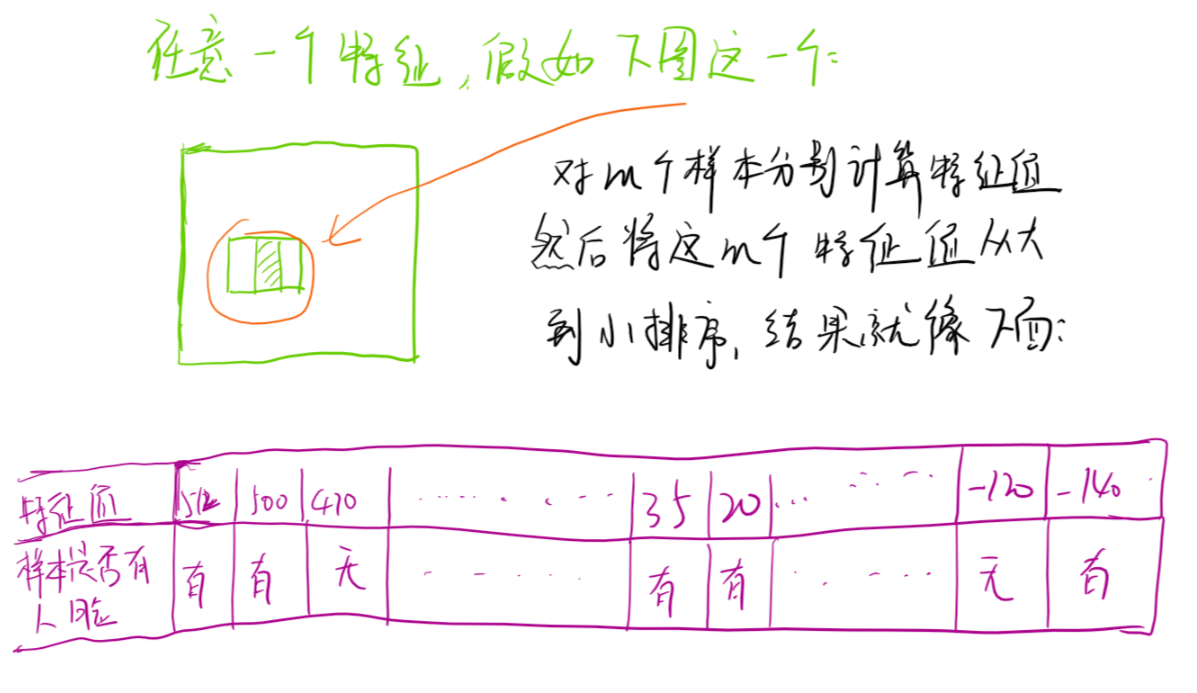 任意一个特征,假如下图这一个:
对m个样本分别计算特征值
然后将这m个特征值从大
到小排序,结果就像下面:
特征值 512 500 470 ...... 35 20 ...... -120 -140
样本是否有人脸 有 有 无 ...... 有 有 ...... 无 有